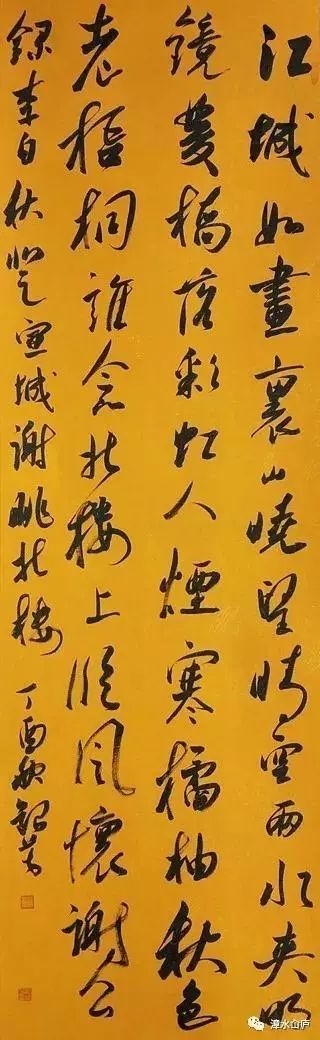 江城如畫裏山曉望晴空兩水夾明
鏡雙橋落彩虹人煙寒橘柚秋色
老梧桐誰念北樓上臨風懷謝公
錄李白秋登宣城謝朓北樓 丁酉秋
漳水山庐